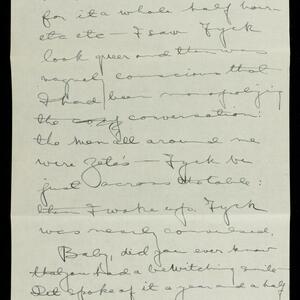 for it a whole half hour
etc etc — I saw Fyck
look queer and then was
conscious that
I had been monopolizing
the conversation:
the men all around me
were Zeta's — Fyck be
just across the table:
then I woke up Fyck
was nearly convulsed.
Baby, did you ever know
that you had a bewitching smile
spoke of it a year and a half